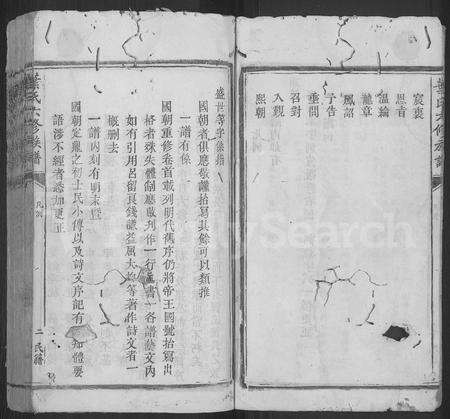 宸衷
恩旨
溫綸
龍章
鳳詔
予告
垂問
召對
入覲
熙朝
盛世等字條指
國朝者俱應敬謹抬寫其餘可以類推
一譜有係
國朝重修卷首載列明代舊序仍將帝王國號抬寫出
格者殊失體制應改刊作一行直書一各譜藝文內
如有引用呂留良錢謙益屈大均等著作詩文者一
概刪去
一譜內刻有明末暨
國朝定鼎之初士民小傳以及詩文序記有 知體要
語涉不經者悉加更正
葉氏六修族譜
凡例
二 民譜
葉氏六修族譜
FamilySearch